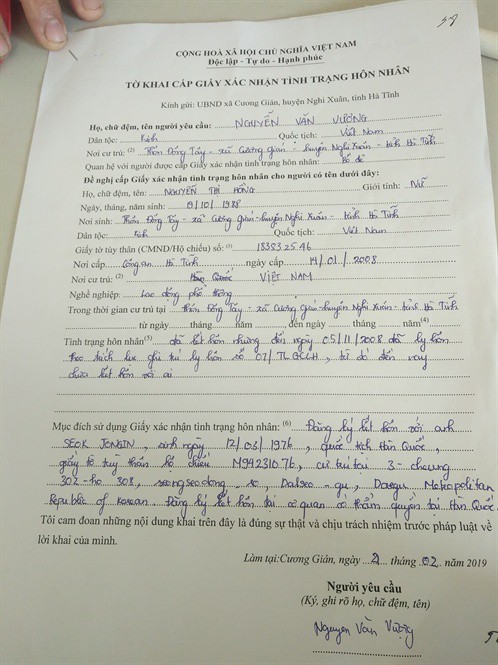 58
CỘNG HOÀ XÃ HỘI CHỦ NGHĨA VIỆT NAM
Độc lập - Tự do - Hạnh phúc
TỜ KHAI CẤP GIẤY XÁC NHẬN TÌNH TRẠNG HÔN NHÂN
Kính gửi: UBND xã Cương Gián, huyện Nghi Xuân, tỉnh Hà Tĩnh
Họ, chữ đệm, tên người yêu cầu: NGUYỄN VĂN VƯỢNG
Dân tộc: Kinh Quốc tịch: Việt Nam
Nơi cư trú: (2) Thôn Đông Tây - xã Cương gián - huyện Nghi Xuân - tỉnh Hà Tĩnh
Quan hệ với người được cấp Giấy xác nhận tình trạng hôn nhân: Bố đẻ
Đề nghị cấp Giấy xác nhận tình trạng hôn nhân cho người có tên dưới đây:
Họ, chữ đệm, tên: NGUYỄN THỊ HỒNG Giới tính: Nữ
Ngày, tháng, năm sinh: /10/1988
Nơi sinh: Thôn Đông Tây - xã Cương Gián - huyện Nghi Xuân - tỉnh Hà Tĩnh
Dân tộc: Kinh Quốc tịch: Việt Nam
Giấy tờ tùy thân (CMND/Hộ chiếu) số: (3) 183832546
Nơi cấp Công an Hà Tĩnh ngày cấp 14/01/2008
Nơi cư trú: (2) Hàn Quốc VIỆT NAM
Nghề nghiệp: Lao động phổ thông
Trong thời gian cư trú tại Thôn Đông Tây - xã Cương Gián - huyện Nghi Xuân - tỉnh Hà Tĩnh
từ ngày tháng năm đến ngày tháng năm (4)
Tình trạng hôn nhân(5) đã kết hôn nhưng đến ngày 05/11/2008 đã ly hôn
theo trích lục ghi chú ly hôn số 07/TLGCLH, từ đó đến nay
chưa kết hôn với ai
Mục đích sử dụng Giấy xác nhận tình trạng hôn nhân: (6) Đăng ký kết hôn với anh
SEOK JONGIN, sinh ngày 12/03/1976, quốc tịch Hàn Quốc,
giấy tờ tuỳ thân hộ chiếu M94231076, cư trú tại 3-cheung
302-ho 308, seongseodong-ro, Dalseo-gu, Daegu Metropolitan
Republic of Korean. Đăng ký kết hôn tại cơ quan có thẩm quyền tại Hàn Quốc
Tôi cam đoan những nội dung khai trên đây là đúng sự thật và chịu trách nhiệm trước pháp luật về
lời khai của mình.
Làm tại: Cương Gián, ngày 2 tháng 02 năm 2019
Người yêu cầu
(Ký, ghi rõ họ, chữ đệm, tên)
Nguyễn Văn Vượng